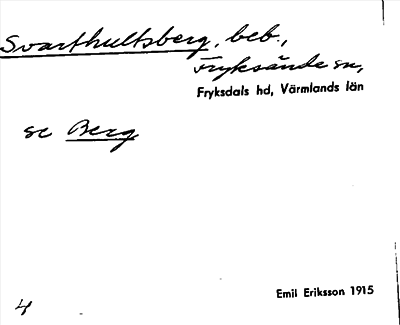 Svarthultsberg, beb.,
Fryksände sn,
Fryksdals hd, Värmlands län
se Berg
Emil Eriksson 1915
4